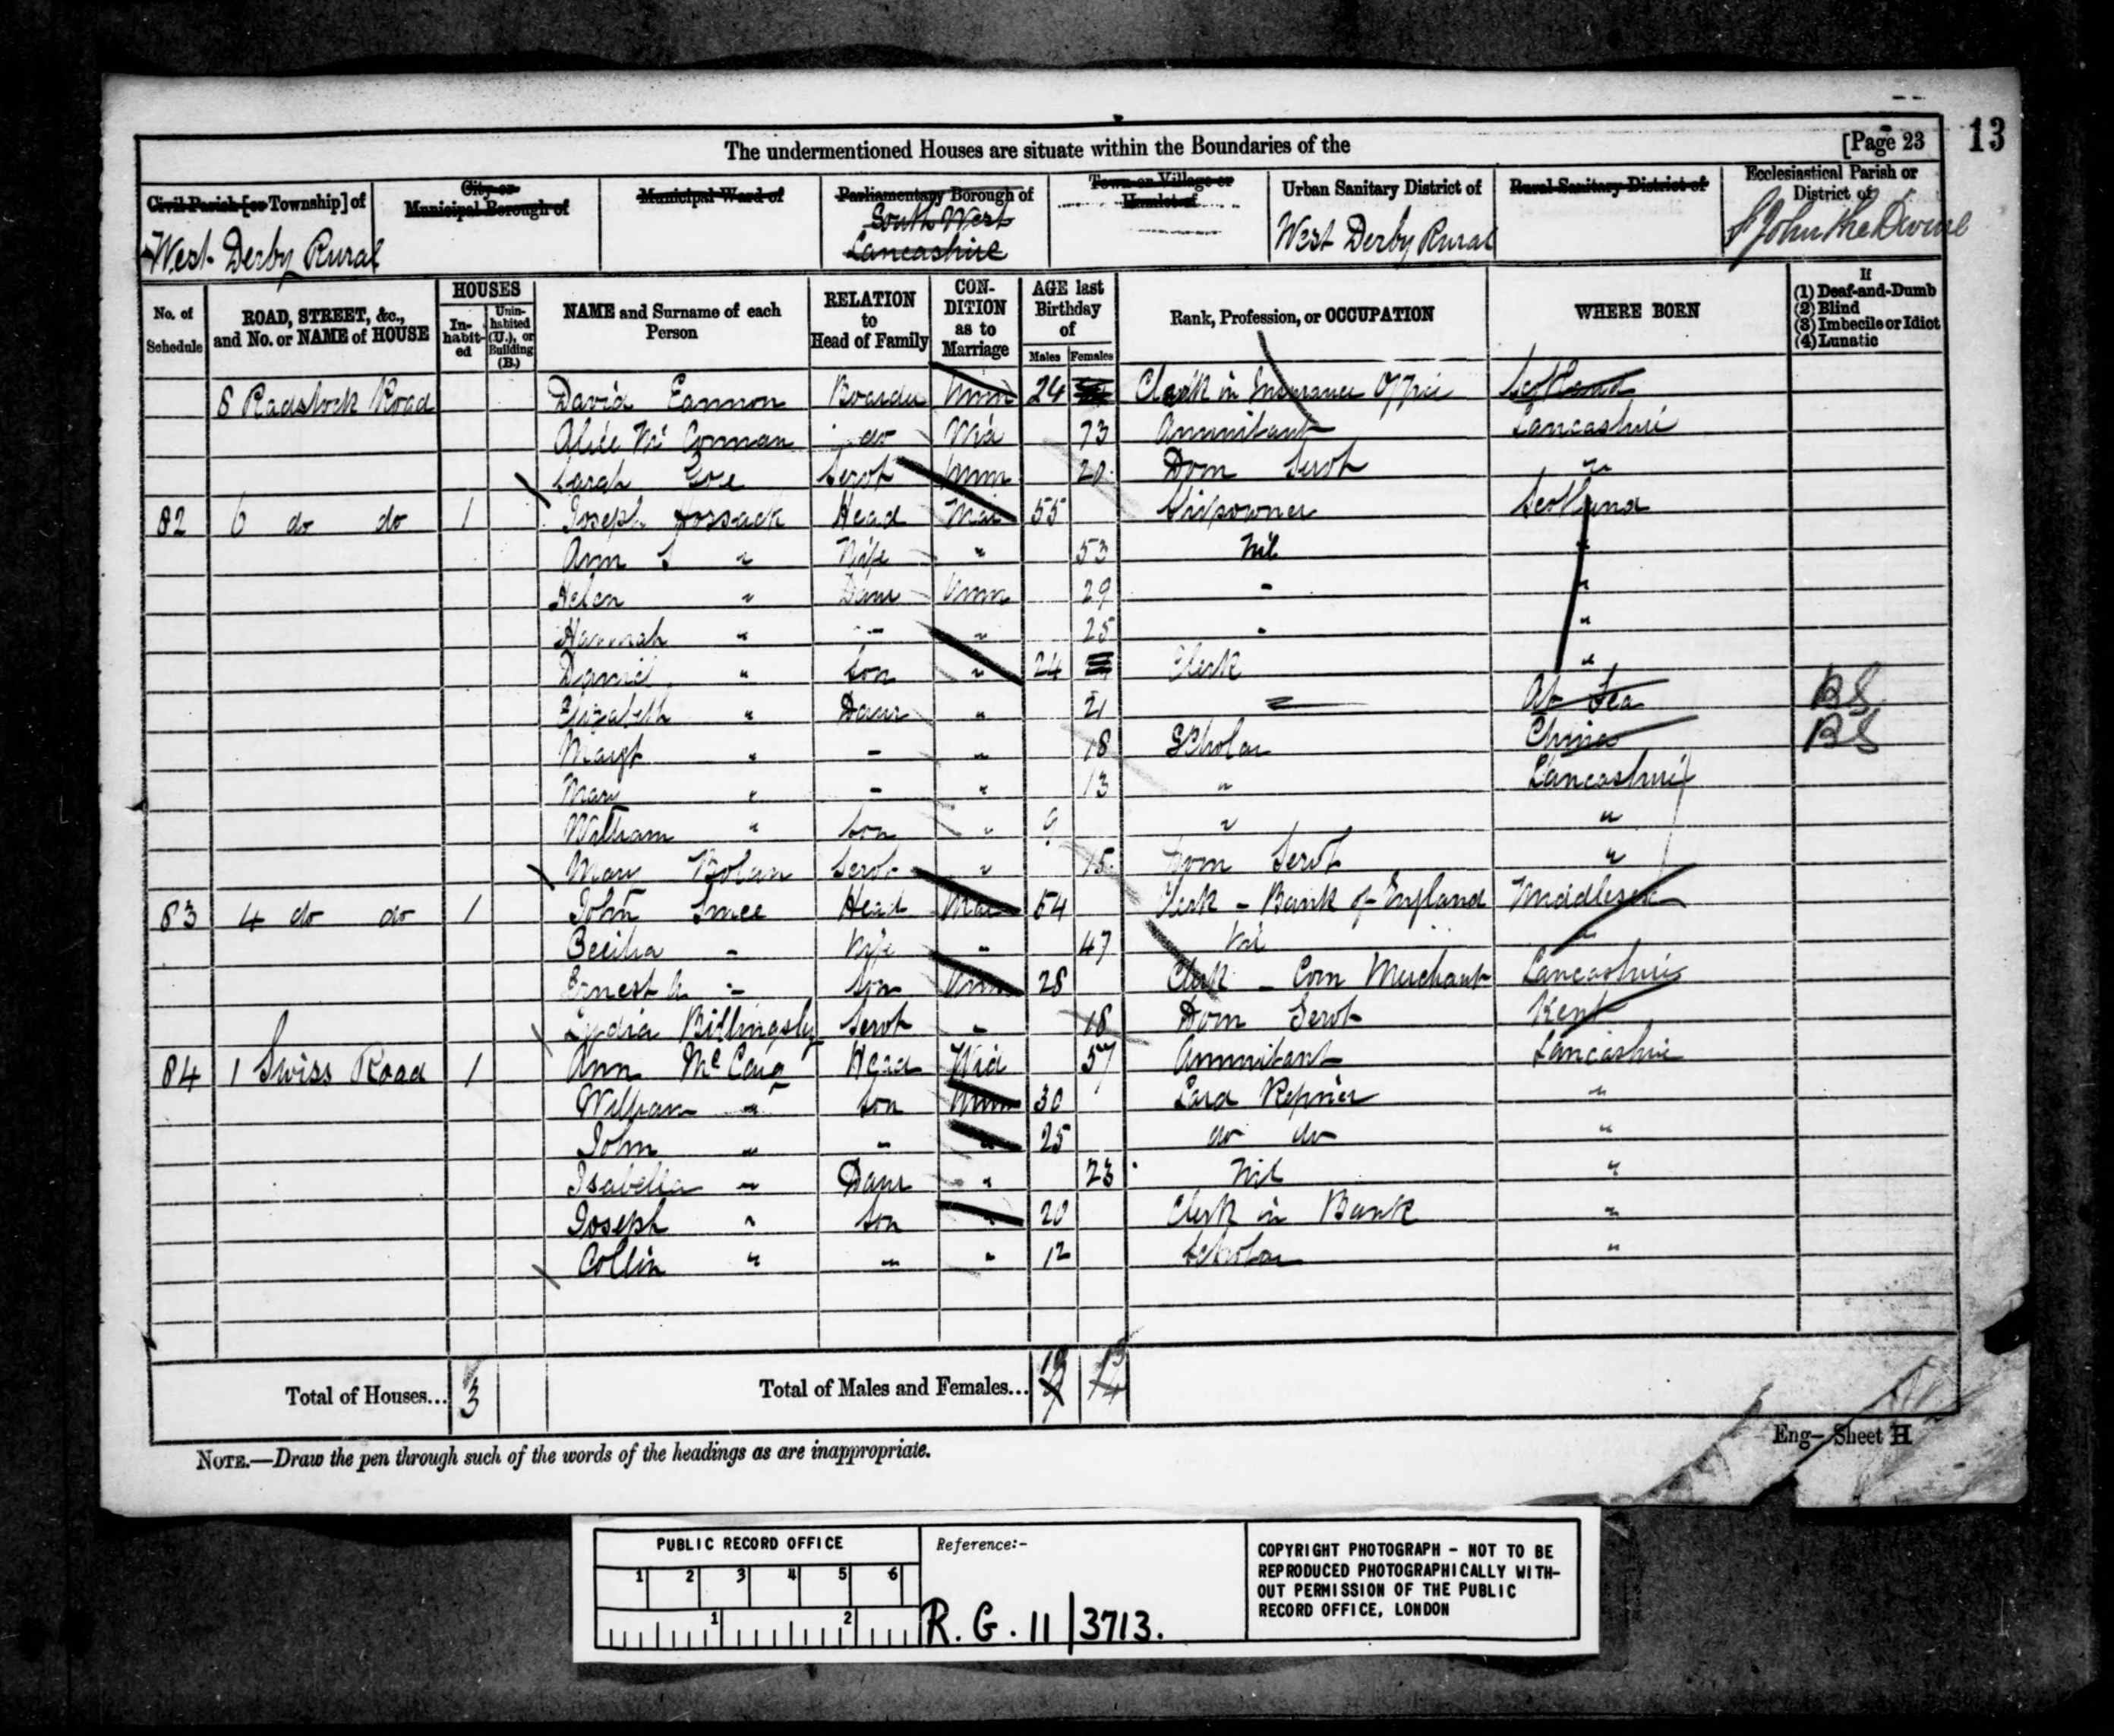 The undermentioned Houses are situate within the Boundaries of the [Page 23 13
Civil Parish [or Township] of
City or Municipal Borough of
Municipal Ward of
Parliamentary Borough of
Town or Village or Hamlet of
Urban Sanitary District of
Rural Sanitary District of
Ecclesiastical Parish or District of
West Derby Rural South West Lancashire West Derby Rural St John the Divine
No. of Schedule
ROAD, STREET, &c., and No. or NAME of HOUSE
HOUSES
In-habit-ed
Unin-habited (U.), or Building (B.)
NAME and Surname of each Person
RELATION to Head of Family
CON-DITION as to Marriage
AGE last Birthday of
Males Females
Rank, Profession, or OCCUPATION
WHERE BORN
If
(1) Deaf-and-Dumb
(2) Blind
(3) Imbecile or Idiot
(4) Lunatic
8 Radstock Road David Boarder Unm 24 Clerk in Insurance Office Scotland
Alice Mc do Wid 73 Annuitant Lancashire
Sarah Servt Unm 20 Dom Servt "
82 6 do do 1 Joseph Hossack Head Mar 55 Shipowner Scotland
Ann S " Wife " 53 Nil "
Helen " Daur Unm 29 - "
Hannah " - " 25 - "
Daniel " Son " 24 Clerk "
Elizabeth " Daur " 21 At Sea BS
Margt " - " 18 Scholar China BS
Mary " - " 13 " Lancashire
William " Son " 9 " "
Mary Bolan Servt " 15 Dom Servt "
83 4 do do 1 John Smee Head Mar 54 Clerk - Bank of England Middlesex
Cecilia - Wife " 47 Nil "
Ernest A - Son Unm 28 Clerk - Corn Merchant Lancashire
Lydia Billingsly Servt - 18 Dom Servt Kent
84 1 Swiss Road 1 Ann McCaig Head Wid 57 Annuitant Lancashire
William " Son Unm 30 Lard Refiner "
John " " " 25 do do "
Isabella " Daur " 23 Nil "
Joseph " Son " 20 Clerk in Bank "
Collin " " " 12 Scholar "
Total of Houses... 3 Total of Males and Females...
NOTE.—Draw the pen through such of the words of the headings as are inappropriate.
Eng—Sheet H
PUBLIC RECORD OFFICE
1 2 3 4 5 6
1 2
Reference:-
R.G. 11/3713.
COPYRIGHT PHOTOGRAPH - NOT TO BE
REPRODUCED PHOTOGRAPHICALLY WITH-
OUT PERMISSION OF THE PUBLIC
RECORD OFFICE, LONDON